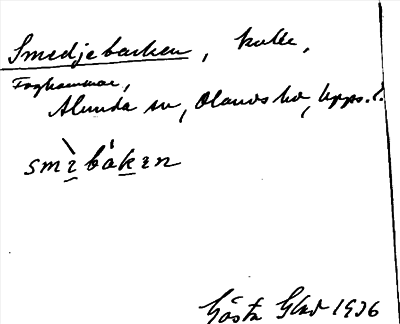 Smedjebacken, kulle,
Foghammar,
Alunda sn, Olands hd, Upps. l.
smìbákɛn
Gösta Glad 1936